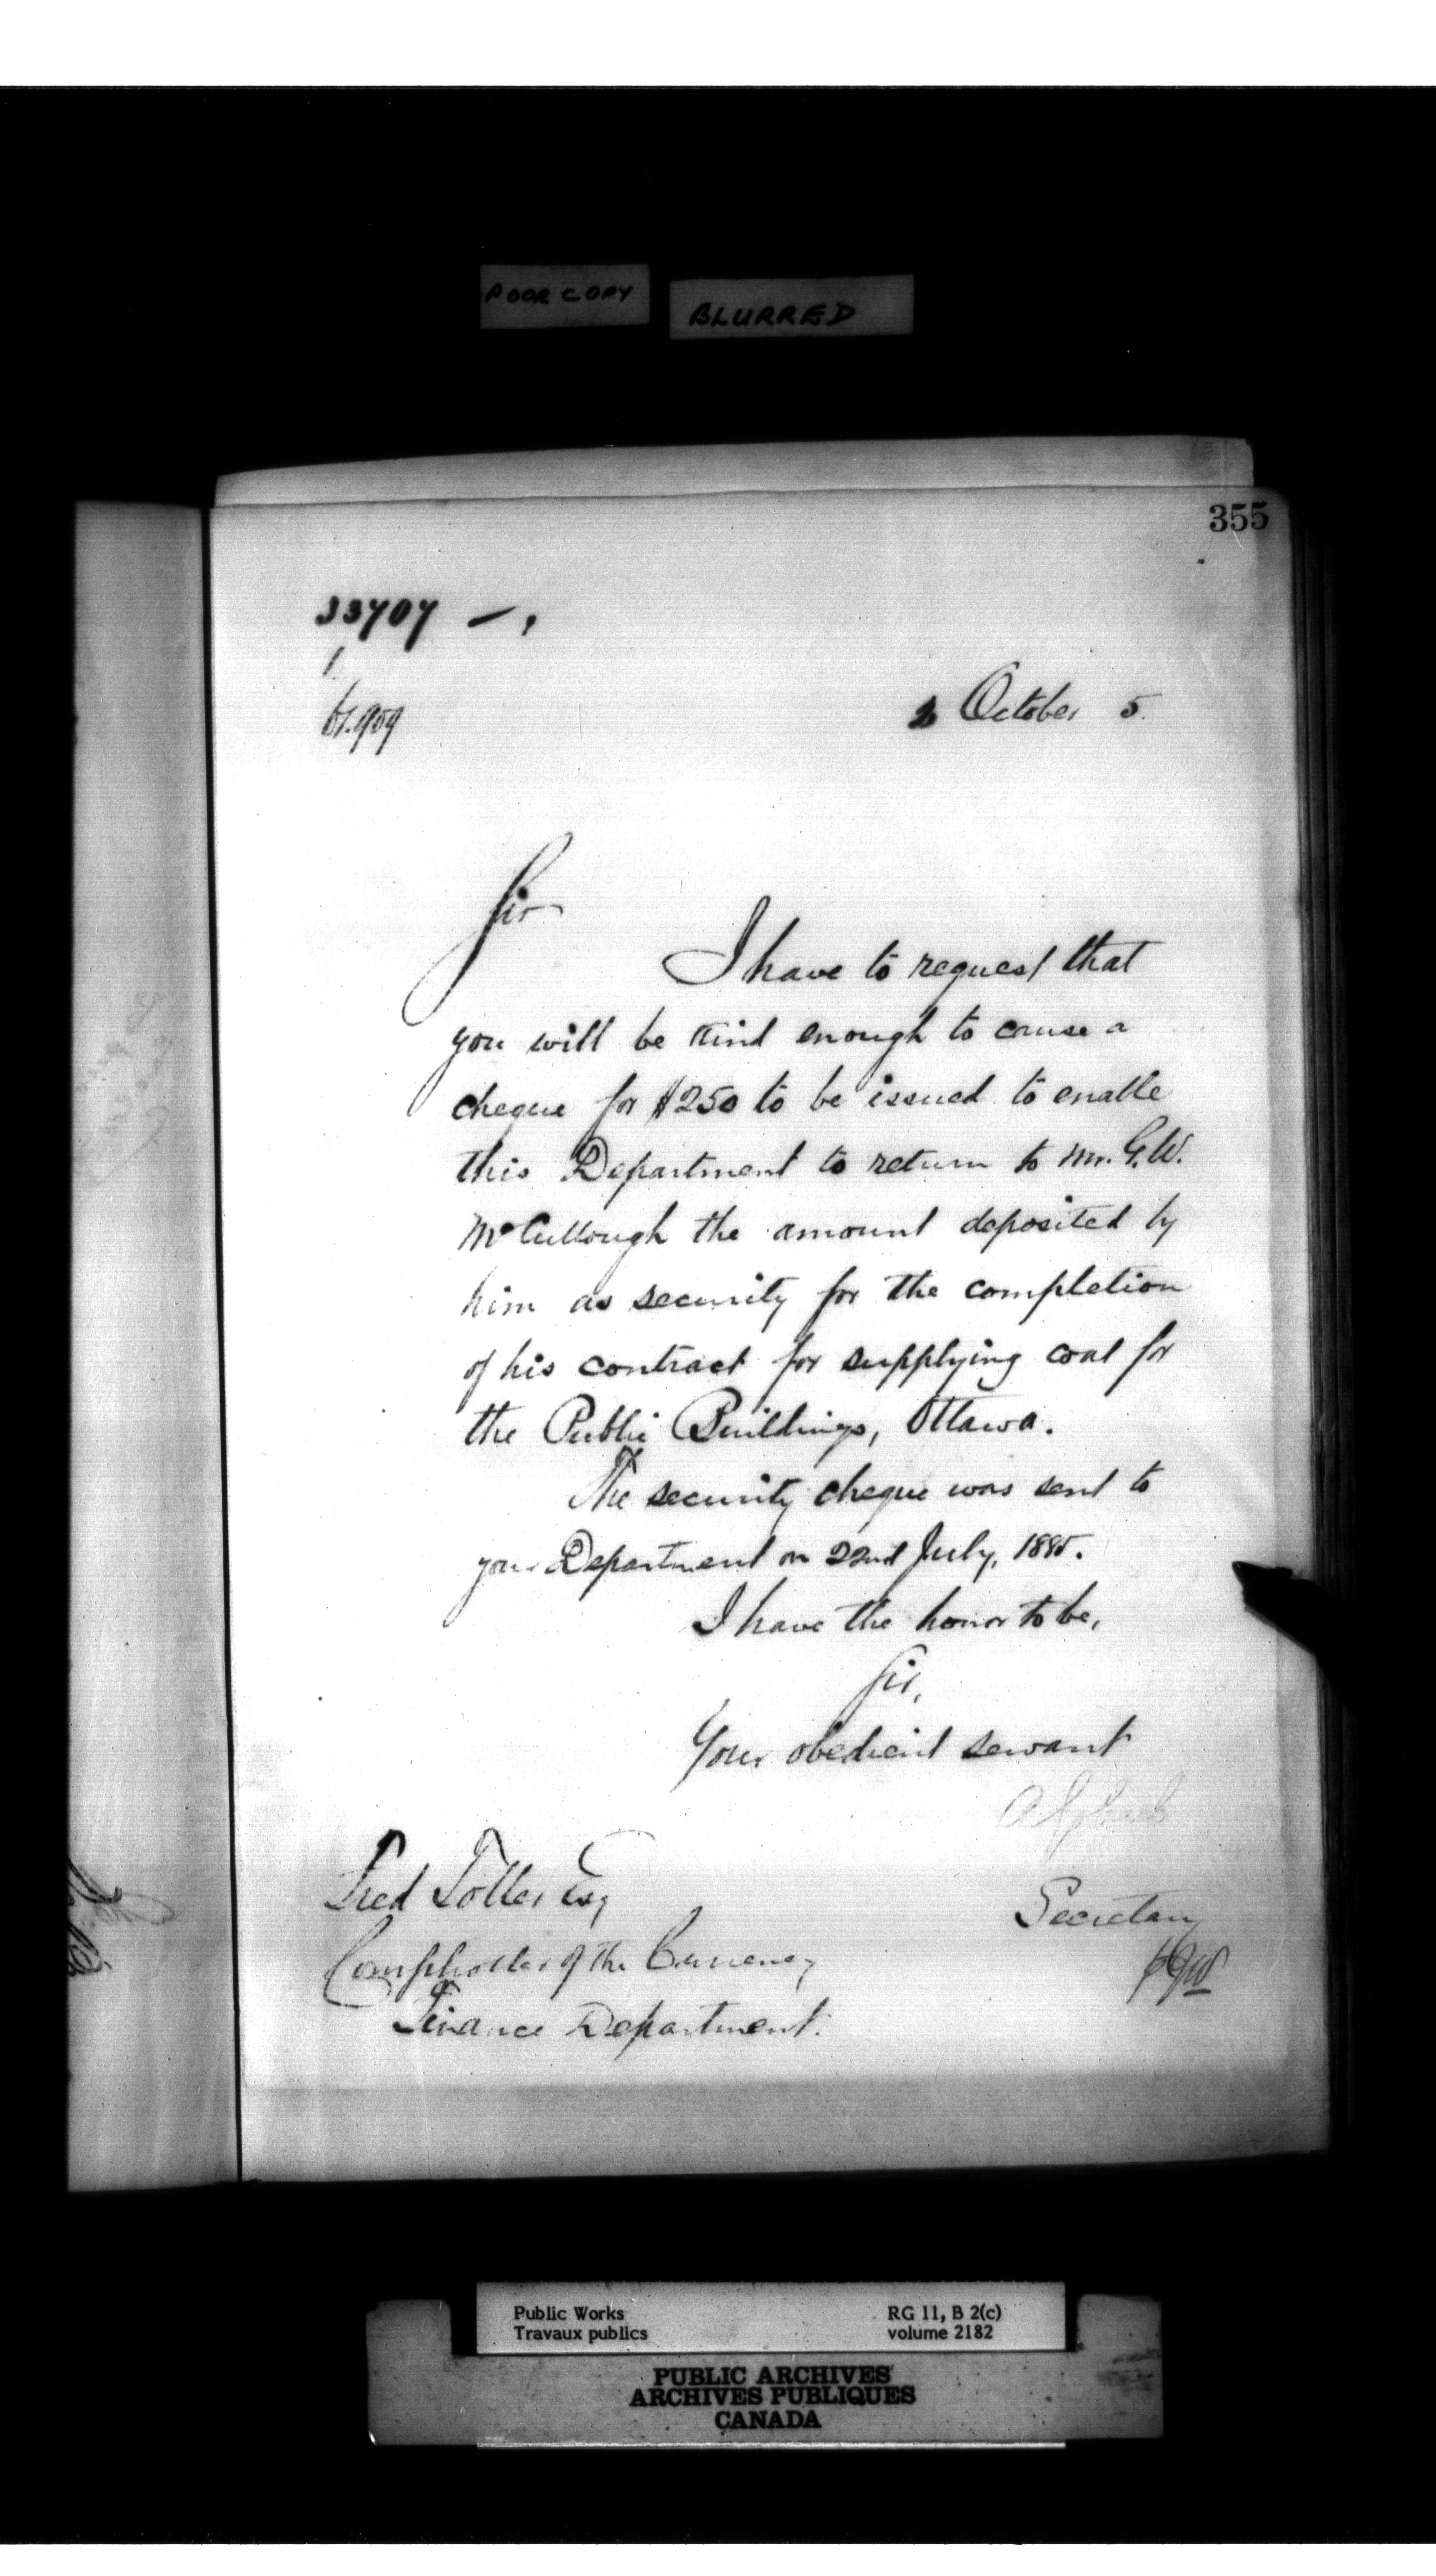 POOR COPY BLURRED
355
33707 — ,
1
61.909
2 October 5.
Sir
I have to request that
you will be kind enough to cause a
cheque for $250 to be issued to enable
this Department to return to Mr. G.W.
McCullough the amount deposited by
him as security for the completion
of his contract for supplying coal for
the Public Buildings, Ottawa.
The security cheque was sent to
your Department on 22nd July, 1885.
I have the honor to be,
Sir,
Your obedient servant
Fred Toller Esq
Secretary
Comptroller of the Currency
Finance Department.
Public Works RG 11, B 2(c)
Travaux publics volume 2182
PUBLIC ARCHIVES
ARCHIVES PUBLIQUES
CANADA